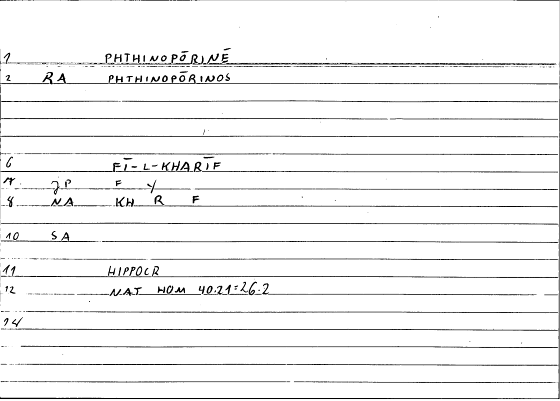 1 PHTHINOPŌRINĒ
2 RA PHTHINOPŌRINOS
6 FĪ-L-KHARĪF
7 JP F Y
8 NA KH R F
10 SA
11 HIPPOCR
12 NAT HOM 40.21=26.2
14